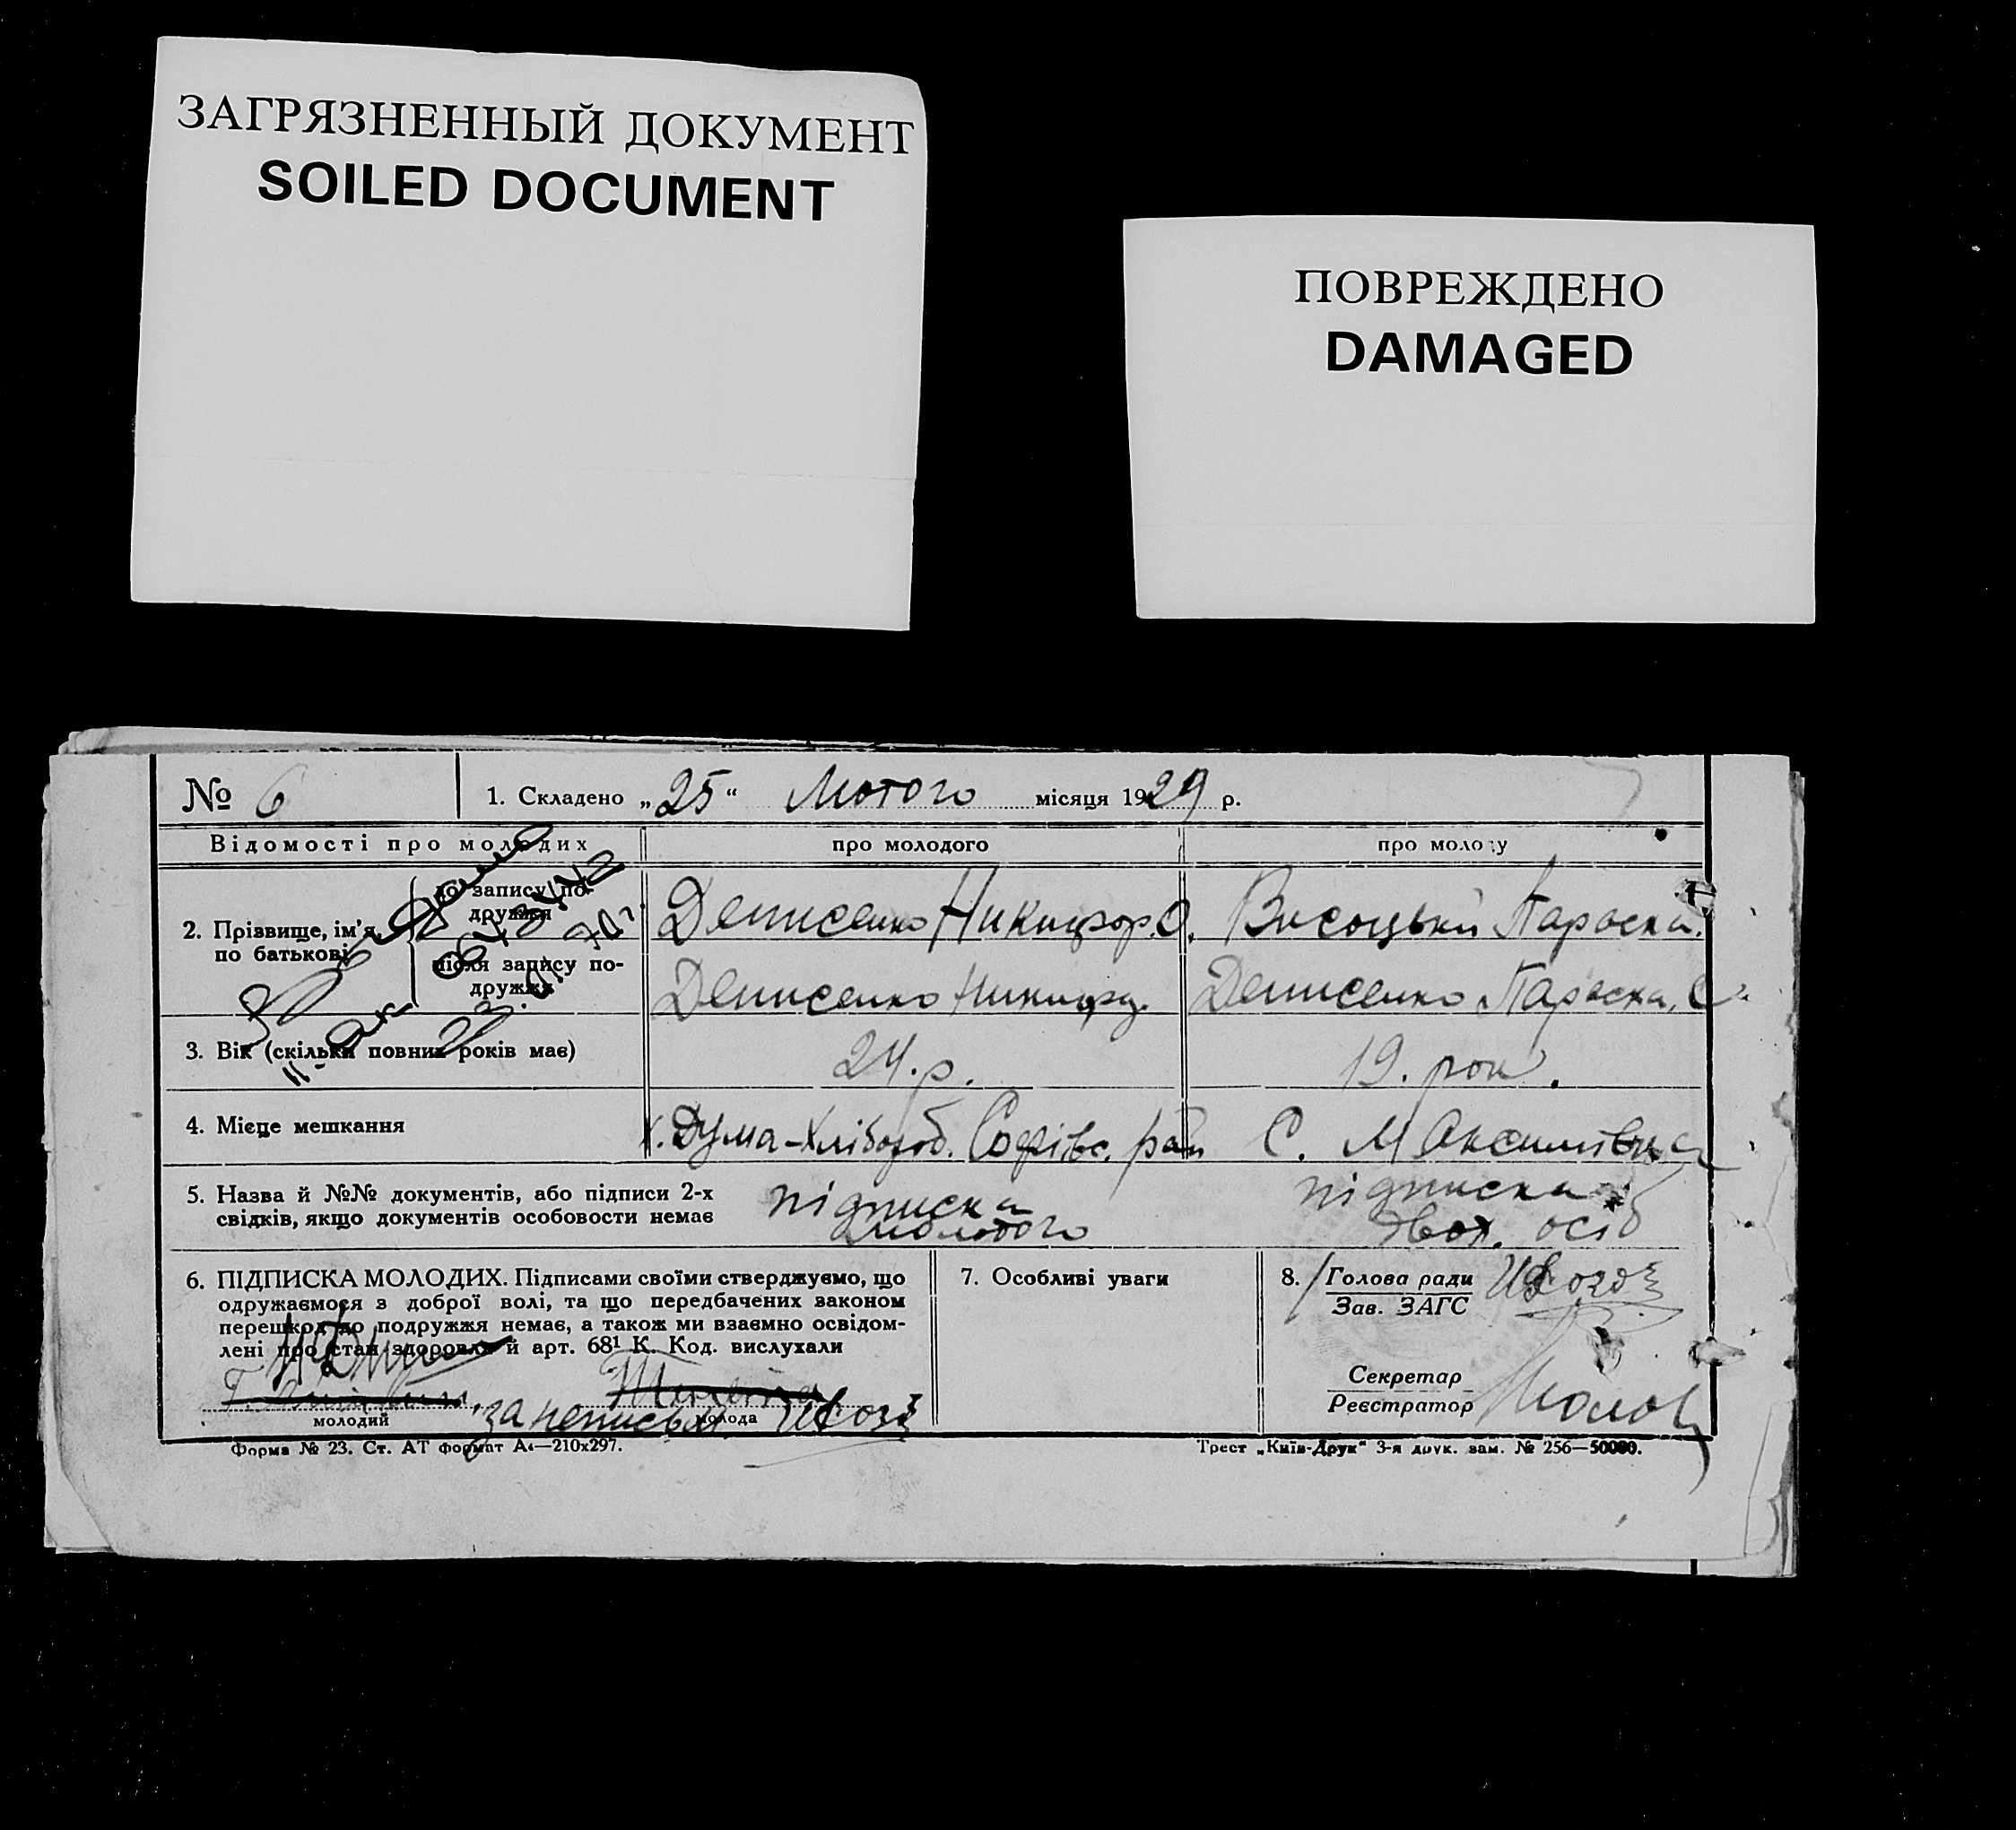 ЗАГРЯЗНЕННЫЙ ДОКУМЕНТ
SOILED DOCUMENT
ПОВРЕЖДЕНО
DAMAGED
№ 6
1. Складено „25“ Лютого місяця 1929 р.
Відомості про молодих
про молодого
про молоду
2. Прізвище, ім'я, по батькові
до запису подружжя
Денисенко Никифор. О.
Висоцький Параска.
після запису подружжя
Денисенко Никифор.
Денисенко Параска, С.
3. Вік (скільки повних років має)
24. р.
19. рок.
4. Місце мешкання
х. Дума-Хлібороб. Софіівс. рай
С. Максимівка
5. Назва й №№ документів, або підписи 2-х
свідків, якщо документів особовости немає
підписка
молодого
підписка
двох. осіб
6. ПІДПИСКА МОЛОДИХ. Підписами своїми стверджуємо, що
одружаємося з доброї волі, та що передбачених законом
перешкод до подружжя немає, а також ми взаємно освідом-
лені про стан здоровля й арт. 68¹ К. Код. вислухали
молодий
молода
7. Особливі уваги
8. Голова ради
Зав. ЗАГС
Секретар
Реєстратор
Форма № 23. Ст. АТ формат А4—210х297.
Трест „Київ-Друк“ 3-я друк. зам. № 256—50000.